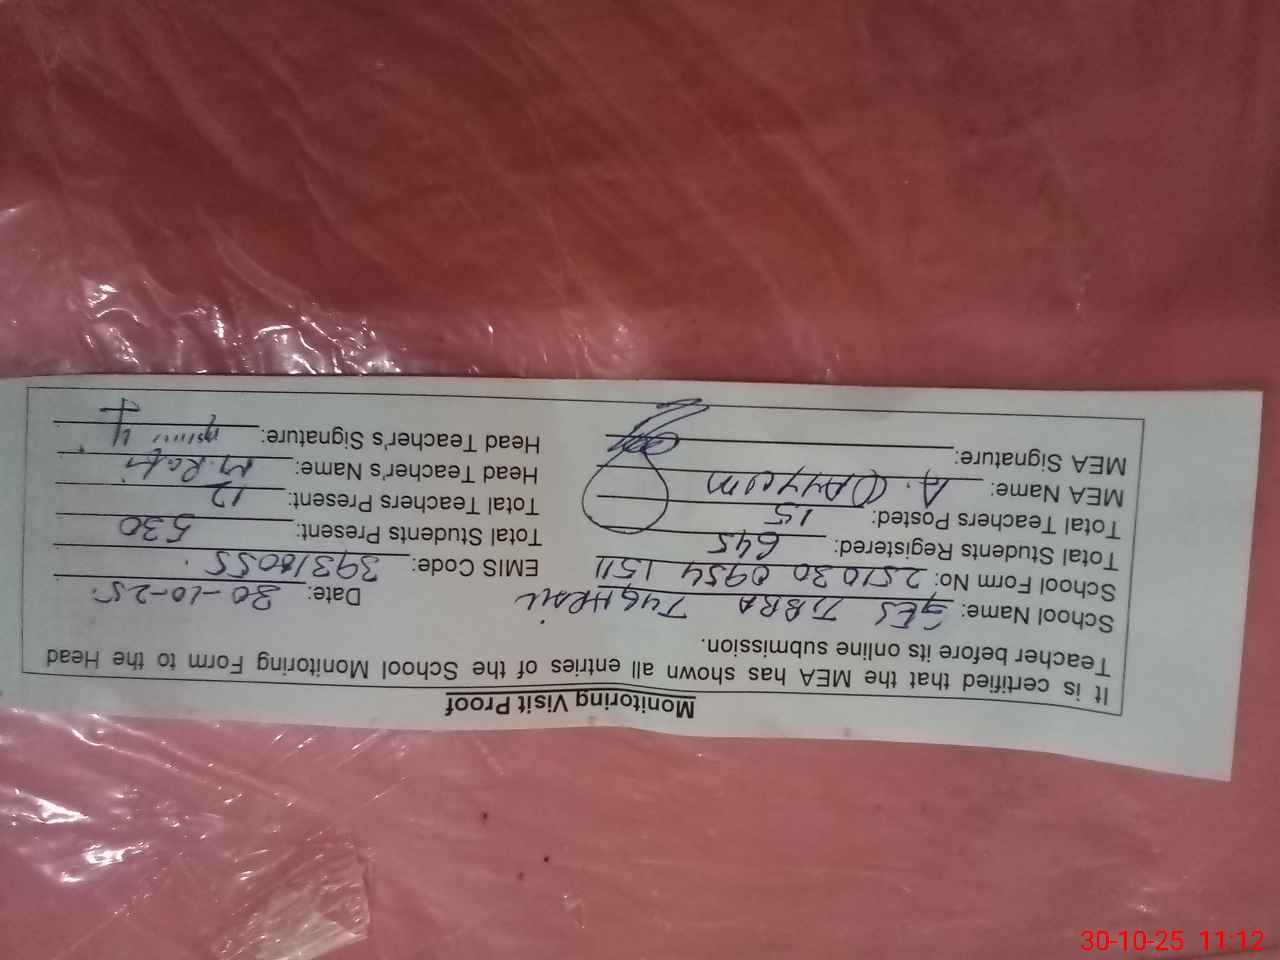 Monitoring Visit Proof
It is certified that the MEA has shown all entries of the School Monitoring Form to the Head
Teacher before its online submission.
School Name: GES TIBBA TUGHRAIL Date: 30-10-25
School Form No: 251030 0954 1511 EMIS Code: 39310055
Total Students Registered: 645 Total Students Present: 530
Total Teachers Posted: 15 Total Teachers Present: 12
MEA Name: A. QAYYUM Head Teacher's Name: M. Rafi
MEA Signature: Head Teacher's Signature:
30-10-25 11:12